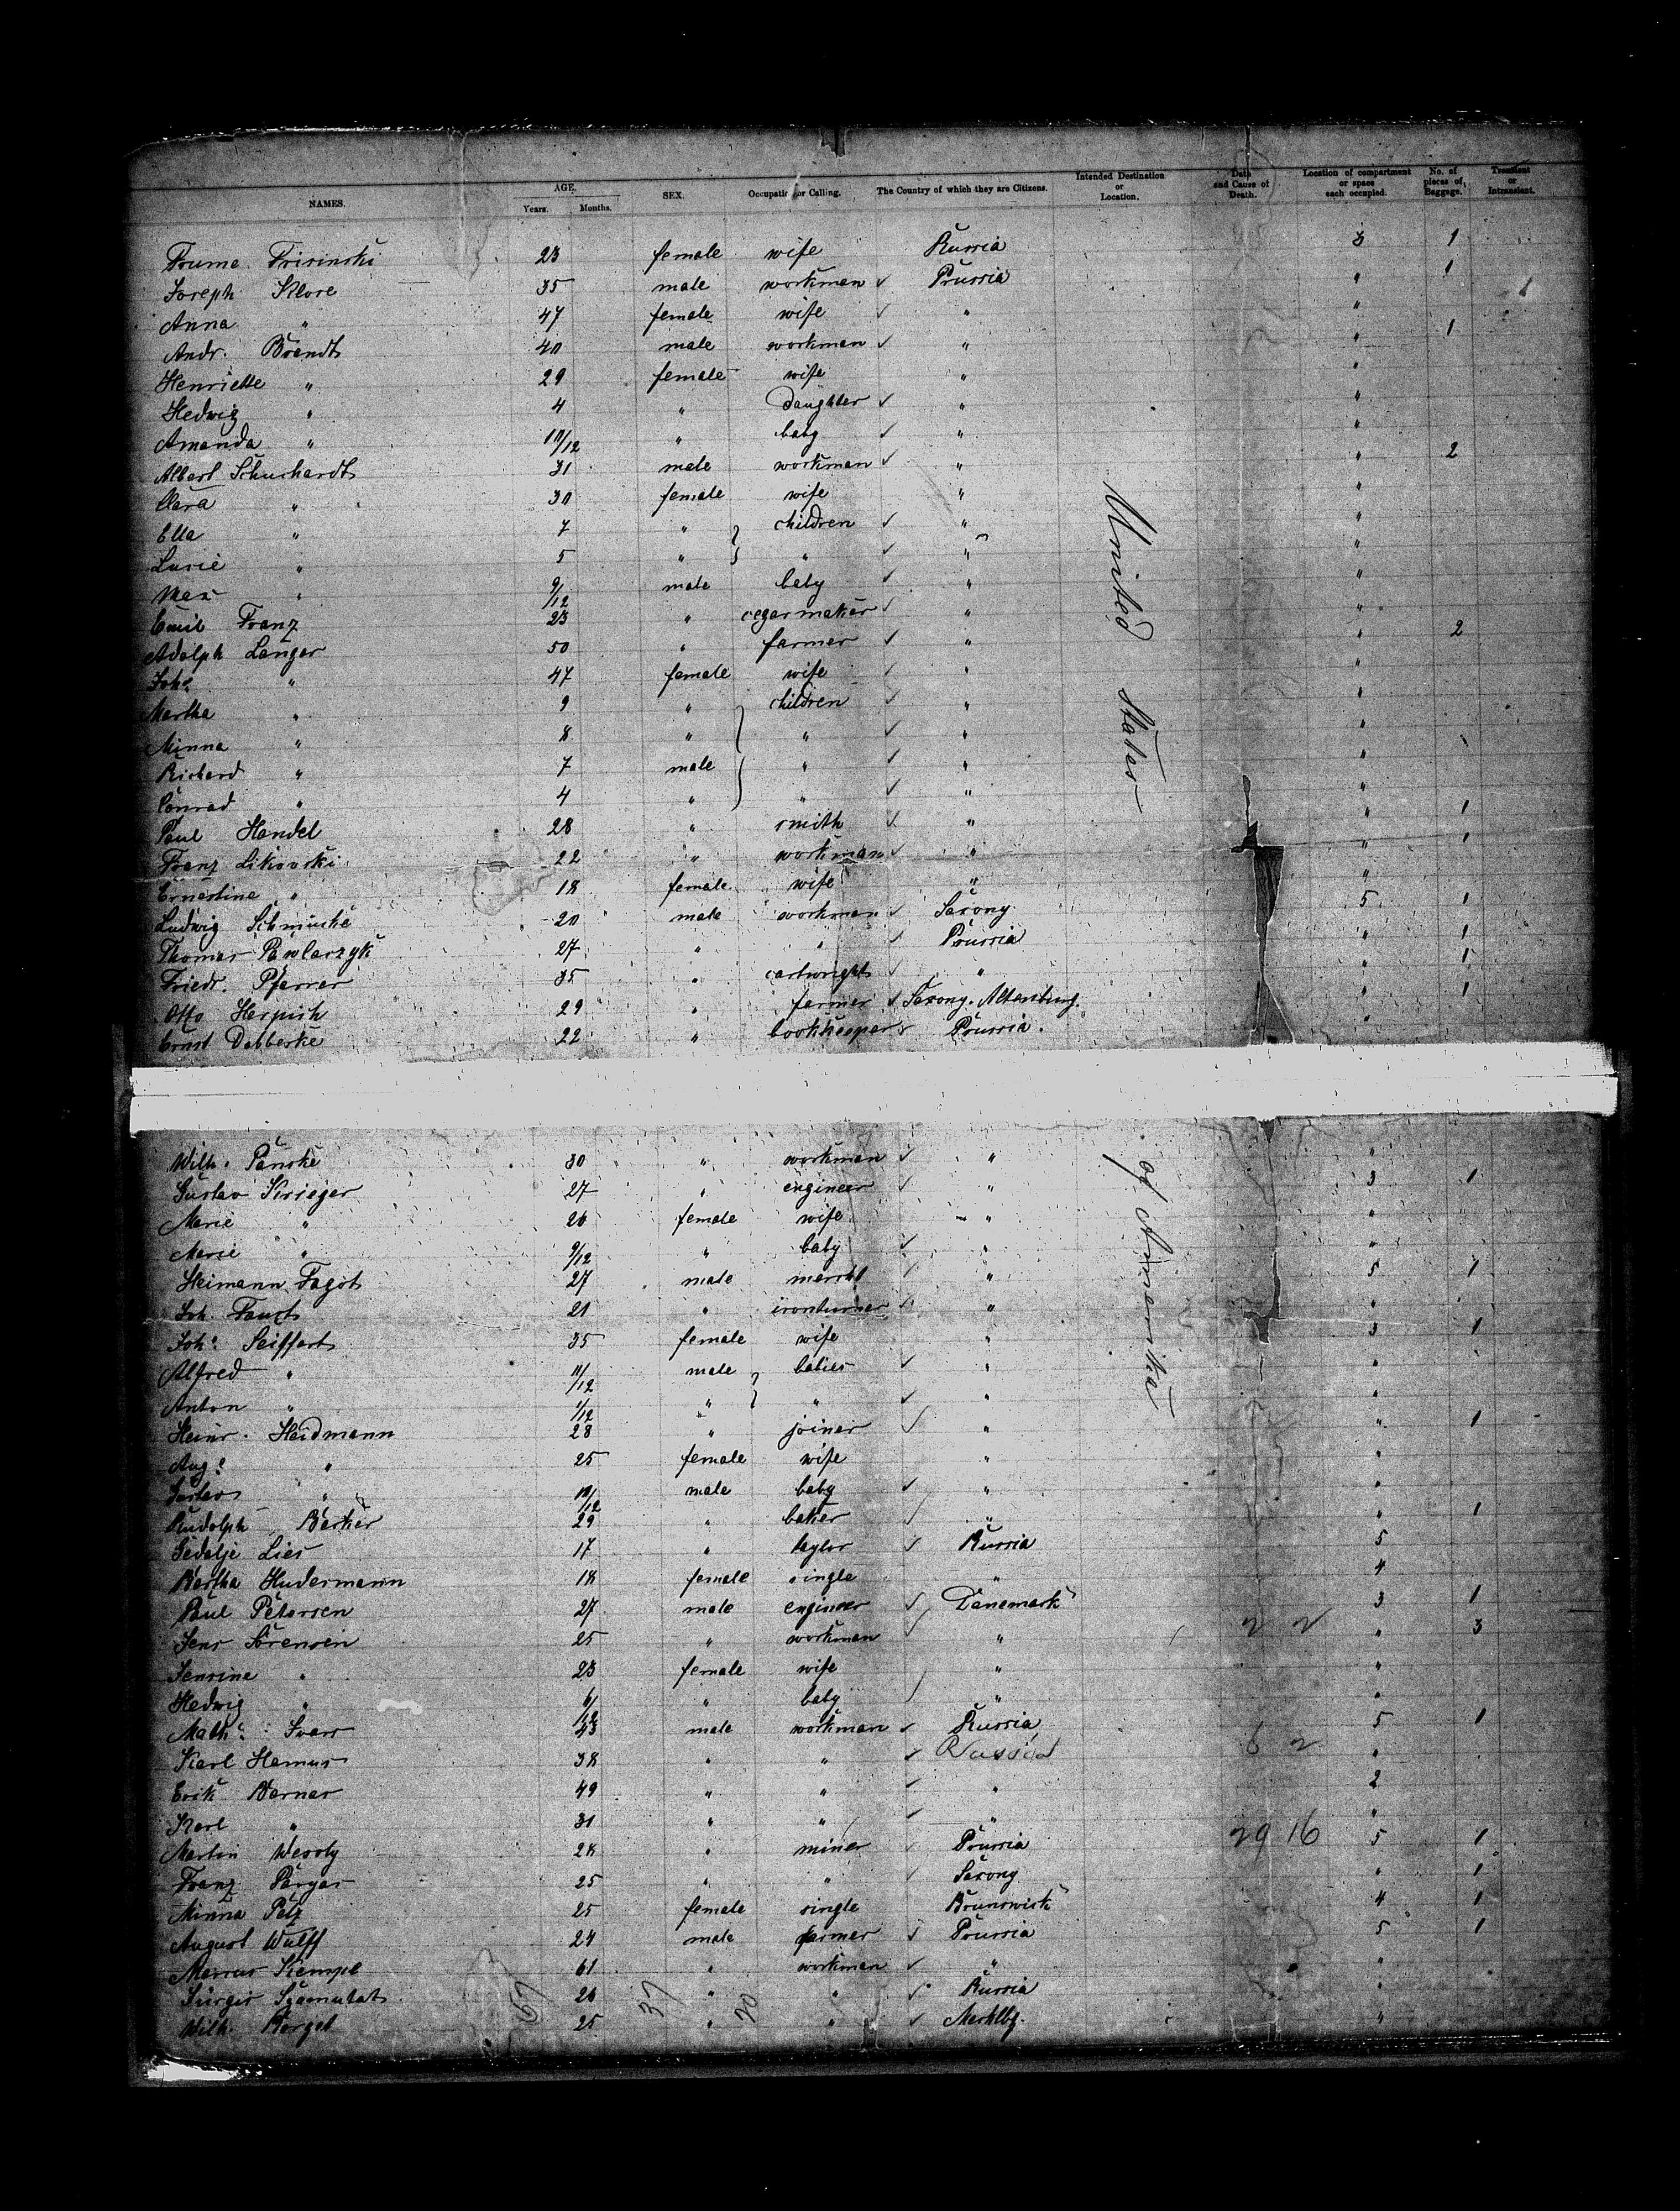 NAMES. AGE. Years. Months. SEX. Occupation or Calling. The Country of which they are Citizens. Intended Destination or Location. Date and Cause of Death. Location of compartment or space each occupied. No. of pieces of Baggage. Transient or Intransient.
Frume Frisinski 23 female wife Russia 3 1
Joseph Klore 35 male workman ✓ Prussia " 1
Anna " 47 female wife ✓ " "
Andr. Brandt 40 male workman ✓ " " 1
Henriette " 29 female wife " "
Hedwig " 4 " daughter ✓ " "
Amanda " 10/12 " baby ✓ " "
Albert Schuchardt 31 male workman ✓ " " 2
Clara " 30 female wife " "
Ella " 7 " children ✓ " "
Lucie " 5 " " ✓ " "
Max " 9/12 male baby ✓ " "
Emil Franz 23 " cegarmaker ✓ " "
Adolph Langer 50 " farmer ✓ " " 2
Johe " 47 female wife ✓ " "
Martha " 9 " children ✓ " "
Minna " 8 " " ✓ " "
Richard " 7 male " ✓ " "
Conrad " 4 " " ✓ " "
Paul Handel 28 " smith ✓ " " 1
Franz Likovski 22 " workman ✓ " " 1
Ernestine " 18 female wife " "
Ludwig Schmincke 20 male workman ✓ Saxony 5 1
Thomas Pawlarzyk 27 " " ✓ Prussia " 1
Friedr. Pfarrer 35 " cartwright ✓ " " 1
Otto Herpich 29 " farmer ✓ Saxony-Altenburg " 1
Ernst Dobberke 22 " bookkeeper ✓ Prussia "
United States
of Amerika
Wilh. Panske 30 " workman ✓ " "
Gustav Krieger 27 " engineer ✓ " 3 1
Marie " 26 female wife " "
Marie " 9/12 " baby ✓ " "
Heimann Fagot 27 male mercht ✓ " 5 1
Joh. Faust 21 " ironturner ✓ " "
Johe Seiffert 35 female wife " 3 1
Alfred " 11/12 male babies ✓ " "
Anton " 1/12 " " ✓ " "
Heinr. Heidmann 28 " joiner ✓ " " 1
Auge " 25 female wife " "
Gustav " 10/12 male baby ✓ " "
Rudolph Barker 29 " baker " " 1
Gedalje Lies 17 " taylor ✓ Russia 5
Bertha Hudermann 18 female single " 4
Paul Petersen 27 male engineer ✓ Danemark 3 1
Jens Sörensen 25 " workman ✓ " 2 2 " 3
Jensine " 23 female wife " "
Hedwig " 6/12 " baby " "
Mathe Svars 43 male workman ✓ Russia 5 1
Karl Hamus 38 " " ✓ Russia 6 2 "
Erik Berner 49 " " ✓ " 2
Karl " 31 " " ✓ " "
Martin Wesoly 28 " miner ✓ Prussia 29 16 5 1
Franz Pargas 25 " " ✓ Saxony " 1
Minna Petz 25 female single Brunswick 4 1
August Wulff 24 male farmer ✓ Prussia 5 1
Marcus Kempe 61 " workman ✓ " "
Jurgis Szamutat 26 " " ✓ Russia "
Wilh. Borget 25 " " ✓ Mecklbg. "
67 37 20